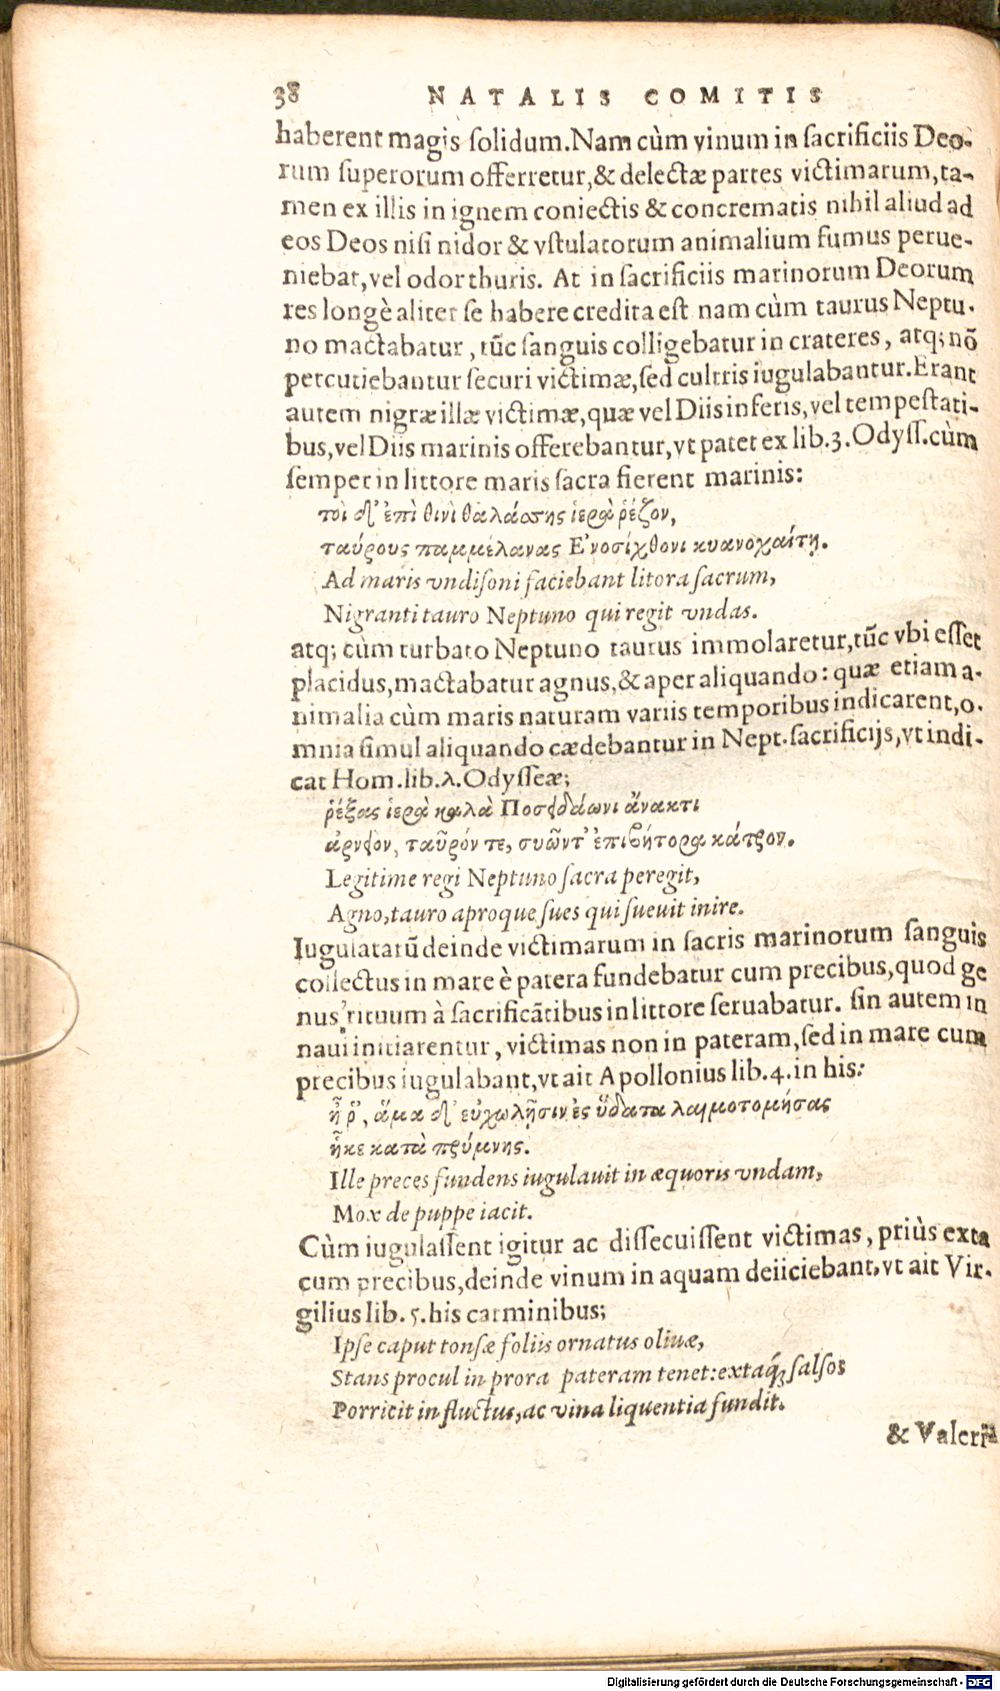 38 NATALIS COMITIS
haberent magis solidum. Nam cùm vinum in sacrificiis Deo-
rum superorum offerretur, & delectæ partes victimarum, ta-
men ex illis in ignem coniectis & concrematis nihil aliud ad
eos Deos nisi nidor & vstulatorum animalium fumus perue-
niebat, vel odor thuris. At in sacrificiis marinorum Deorum
res longè aliter se habere credita est nam cùm taurus Neptu-
no mactabatur, tũc sanguis colligebatur in crateres, atq; nõ
percutiebantur securi victimæ, sed cultris iugulabantur. Erant
autem nigræ illæ victimæ, quæ vel Diis inferis, vel tempestati-
bus, vel Diis marinis offerebantur, vt patet ex lib. 3. Odyss. cùm
semper in littore maris sacra fierent marinis:
τοὶ δ' ἐπὶ θινὶ θαλάσσης ἱερὰ ῥέζον,
ταύρους παμμέλανας Ε'νοσίχθονι κυανοχαίτῃ.
Ad maris vndisoni faciebant litora sacrum,
Nigranti tauro Neptuno qui regit vndas.
atq; cùm turbato Neptuno taurus immolaretur, tũc vbi esset
placidus, mactabatur agnus, & aper aliquando: quæ etiam a-
nimalia cùm maris naturam variis temporibus indicarent, o-
mnia simul aliquando cædebantur in Nept. sacrificijs, vt indi-
cat Hom. lib. λ. Odysseæ;
ῥέξας ἱερὰ καλὰ Ποσειδάωνι ἄνακτι
ἀρνειὸν, ταῦρόν τε, συῶντ' ἐπιβήτορα κάπρον.
Legitime regi Neptuno sacra peregit,
Agno, tauro aproque sues qui sueuit inire.
Iugulatarũ deinde victimarum in sacris marinorum sanguis
collectus in mare è patera fundebatur cum precibus, quod ge
nus rituum à sacrificãtibus in littore seruabatur. sin autem in
naui initiarentur, victimas non in pateram, sed in mare cum
precibus iugulabant, vt ait Apollonius lib. 4. in his:
ἦ ῥ', ἅμα δ' εὐχωλῇσιν ἐς ὕδατα λαιμοτομήσας
ἧκε κατὰ πρύμνης.
Ille preces fundens iugulauit in æquoris vndam,
Mox de puppe iacit.
Cùm iugulassent igitur ac dissecuissent victimas, priùs exta
cum precibus, deinde vinum in aquam deiiciebant, vt ait Vir-
gilius lib. 5. his carminibus;
Ipse caput tonsæ foliis ornatus oliuæ,
Stans procul in prora pateram tenet: extaq́; salsos
Porricit in fluctus, ac vina liquentia fundit.
& Valeri9
Digitalisierung gefördert durch die Deutsche Forschungsgemeinschaft - DFG